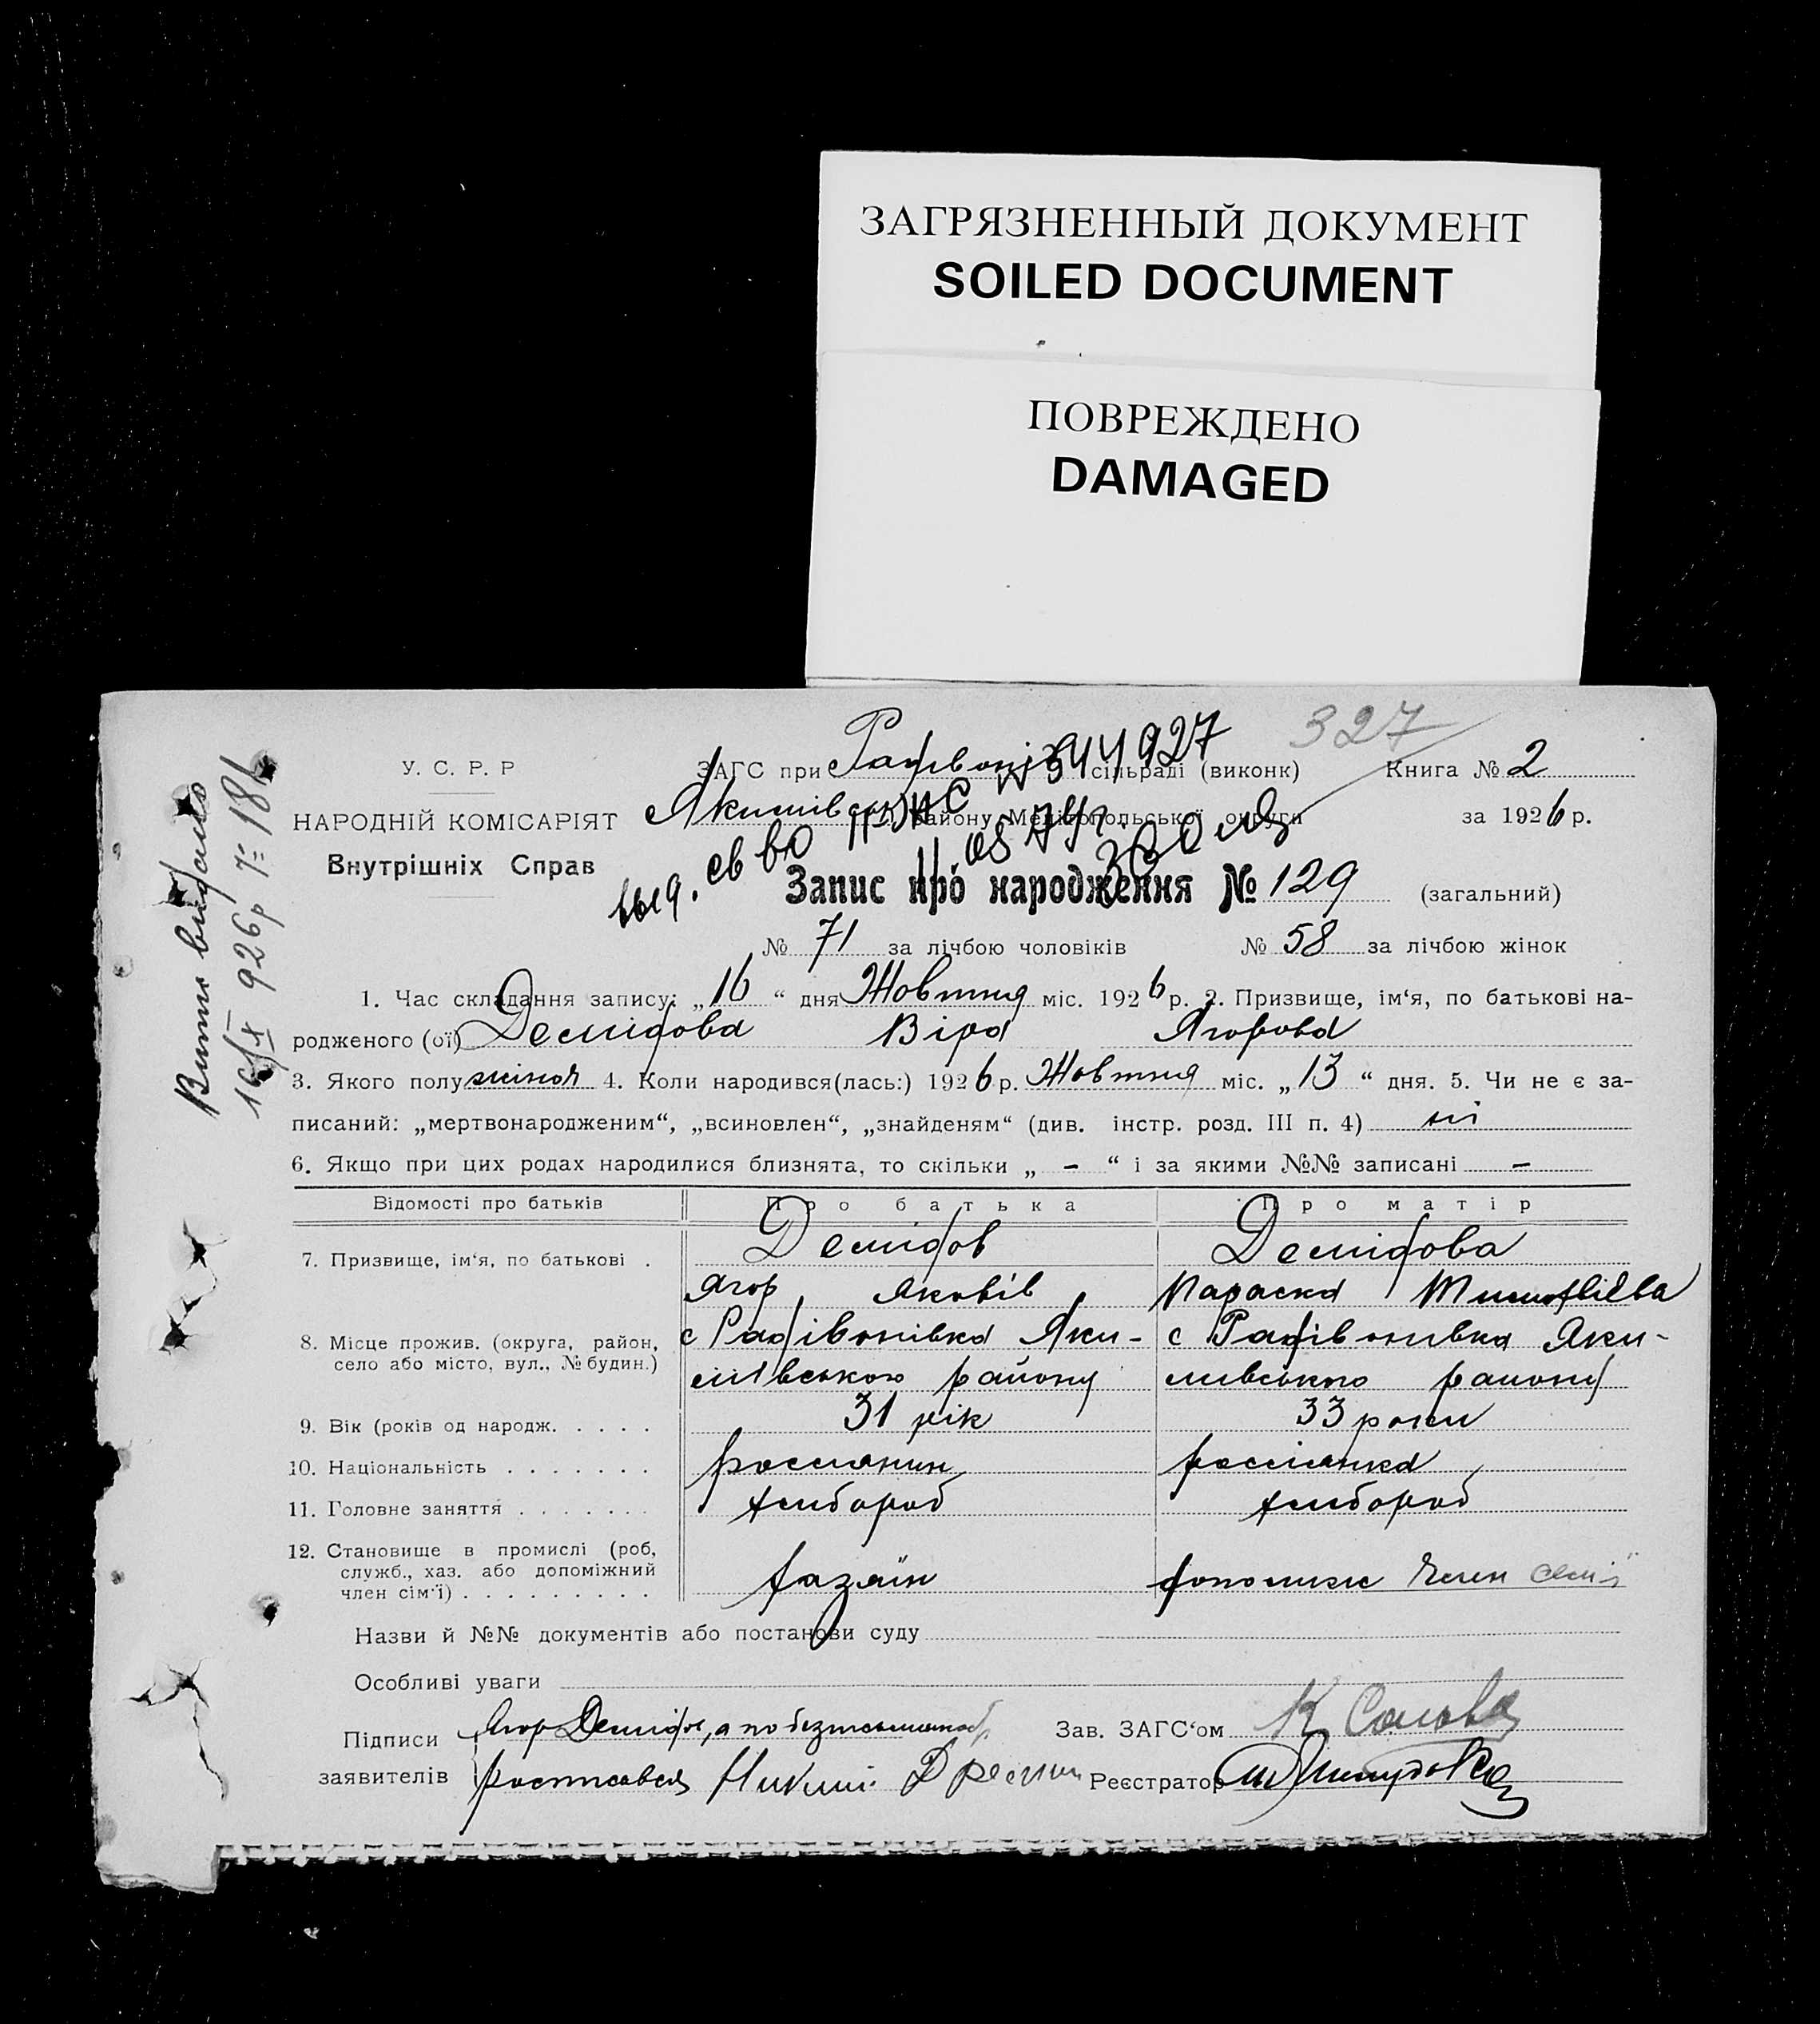 ЗАГРЯЗНЕННЫЙ ДОКУМЕНТ
SOILED DOCUMENT
ПОВРЕЖДЕНО
DAMAGED
327
У. С. Р. Р
ЗАГС при сільраді (виконк)
Книга № 2
НАРОДНІЙ КОМІСАРІЯТ
району, Мелітопольської округи
за 1926 р.
Внутрішніх Справ
Запис про народження № 129 (загальний)
№ 71 за лічбою чоловіків № 58 за лічбою жінок
Витяг видано
1. Час складання запису: „16“ дня Жовтня міс. 1926 р. 2. Призвище, ім‘я, по батькові на-
родженого (ої) Демідова Віра Ягорова
3. Якого полу жіноч 4. Коли народився(лась:) 1926 р. Жовтня міс. „13“ дня. 5. Чи не є за-
писаний: „мертвонародженим“, „всиновлен“, „знайденям“ (див. інстр. розд. III п. 4) ні
6. Якщо при цих родах народилися близнята, то скільки „ - “ і за якими №№ записані -
Відомості про батьків Про батька Про матір
7. Призвище, ім‘я, по батькові . Демідов Демідова
Ягор Яковів Параска Тимофіївва
8. Місце прожив. (округа, район, с Радівонівка Яки- с Радівонивка Яки-
село або місто, вул., № будин.) мівського району мивського району
9. Вік (років од народж. . . . . 31 рік 33 роки
10. Національність . . . . . . . россиянин россіянка
11. Головне заняття . . . . . . . хлибороб хлибороб
12. Становище в промислі (роб,
служб., хаз. або допоміжний
член сім‘ї) . . . . . . . . . хазяїн допомижн член семії
Назви й №№ документів або постанови суду
Особливі уваги
Підписи Ягор Демідов, а по
Зав. ЗАГС‘ом
заявителів росписався
Реєстратор